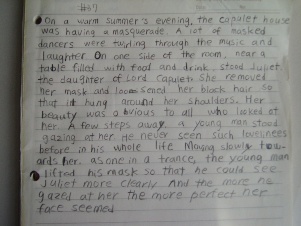 #47
On a warm summer's evening, the capulet house
was having a masquerade. A lot of masked
dancers were twirling through the music and
laughter. On one side of the room, near a
table filled with food and drink, stood Juliet
the daughter of Lord Capulet. She removed
her mask and loosened her black hair so
that it hung around her shoulders. Her
beauty was obvious to all who looked at
her. A few steps away a young man stood
gazing at her. He never seen such loveliness
before in his whole life. Moving slowly tow-
ards her, as one in a trance, the young man
lifted his mask so that he could see
Juliet more clearly. And the more he
gazed at her the more perfect her
face seemed